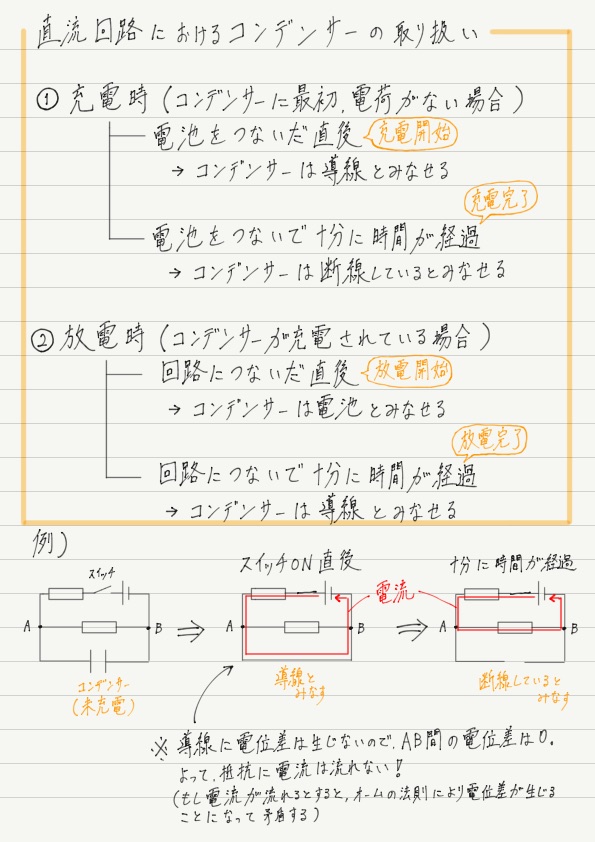 直流回路におけるコンデンサーの取り扱い
① 充電時(コンデンサーに最初、電荷がない場合)
電池をつないだ直後 充電開始
→ コンデンサーは導線とみなせる
充電完了
電池をつないで十分に時間が経過
→ コンデンサーは断線しているとみなせる
② 放電時(コンデンサーが充電されている場合)
回路につないだ直後 放電開始
→ コンデンサーは電池とみなせる
放電完了
回路につないで十分に時間が経過
→ コンデンサーは導線とみなせる
例)
スイッチON直後
十分に時間が経過
スイッチ
電流
A B ⇒ A B ⇒ A B
コンデンサー
(未充電)
導線と
みなす
断線していると
みなす
※ 導線に電位差は生じないので、AB間の電位差は0。
よって、抵抗に電流は流れない!
(もし電流が流れるとすると、オームの法則により電位差が生じる
ことになって矛盾する)